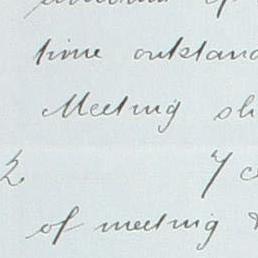 time outstand
Meeting sh
2 7 c
of meeting